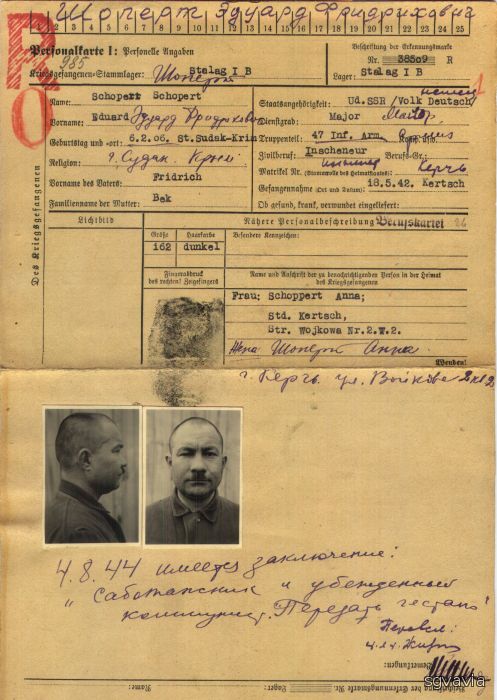 Шоперт Эдуард Фридрихович
1 2 3 4 5 6 7 8 9 10 11 12 13 14 15 16 17 18 19 20 21 22 23 24 25
RO
Personalkarte I: Personelle Angaben
985
Kriegsgefangenen-Stammlager: Stalag I B
Шоперт
Beschriftung der Erkennungsmarke
Nr. 38509 R
Lager: Stalag I B
Des Kriegsgefangenen
Name: Schopert Schopert
Vorname: Eduard Эдуард Фридрихович
Geburtstag und -ort: 6.2.06. St.Sudak-Krim
Religion: г. Судак. Крым
Vorname des Vaters: Fridrich
Familienname der Mutter: Bek
Staatsangehörigkeit: Ud.SSR/Volk Deutsch/
немец
Dienstgrad: Major Майор
Truppenteil: 47 Inf. Arm.
Zivilberuf: Inscheneur Berufs-Gr.:
Matrikel Nr. (Stammrolle des Heimatstaates): Керчь
Gefangennahme (Ort und Datum): 18.5.42. Kertsch
Ob gesund, krank, verwundet eingeliefert:
Lichtbild
Nähere Personalbeschreibung
Größe
Haarfarbe
Besondere Kennzeichen:
162 dunkel
Fingerabdruck
des rechten! Zeigefingers
Name und Anschrift der zu benachrichtigenden Person in der Heimat
des Kriegsgefangenen
Frau: Schoppert Anna;
Std. Kertsch,
Str. Wojkowa Nr.2.W.2.
Жена Шоперт Анна
Wenden!
г. Керчь ул. Войкова 2 кв 2
4.8.44 имеется заключение:
"Саботажник и убежденный
коммунист. Передать гестапо"
Перевел:
Bemerkungen:
Name:
Lager:
sgvavia